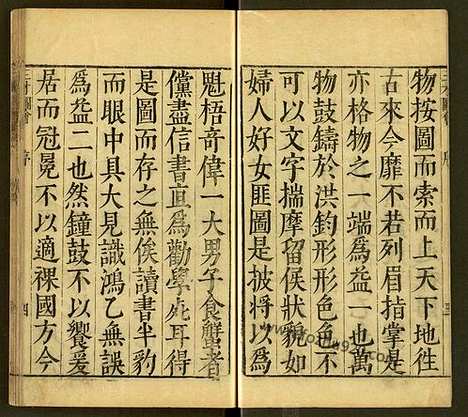 物按圖而索而上天下地徃
古來今靡不若列眉指掌是
亦格物之一端爲益一也萬
物鼓鑄於洪鈞形形色色不
可以文字揣摩留侯狀貌如
婦人好女匪圖是披將以爲
魁梧竒偉一大男子食蟹者
儻盡信書直爲勸學死耳得
是圖而存之無俟讀書半豹
而眼中具大見識鴻乙無誤
爲益二也然鐘鼓不以饗爰
居而冠冕不以適裸國方今
三才圖會
序
四